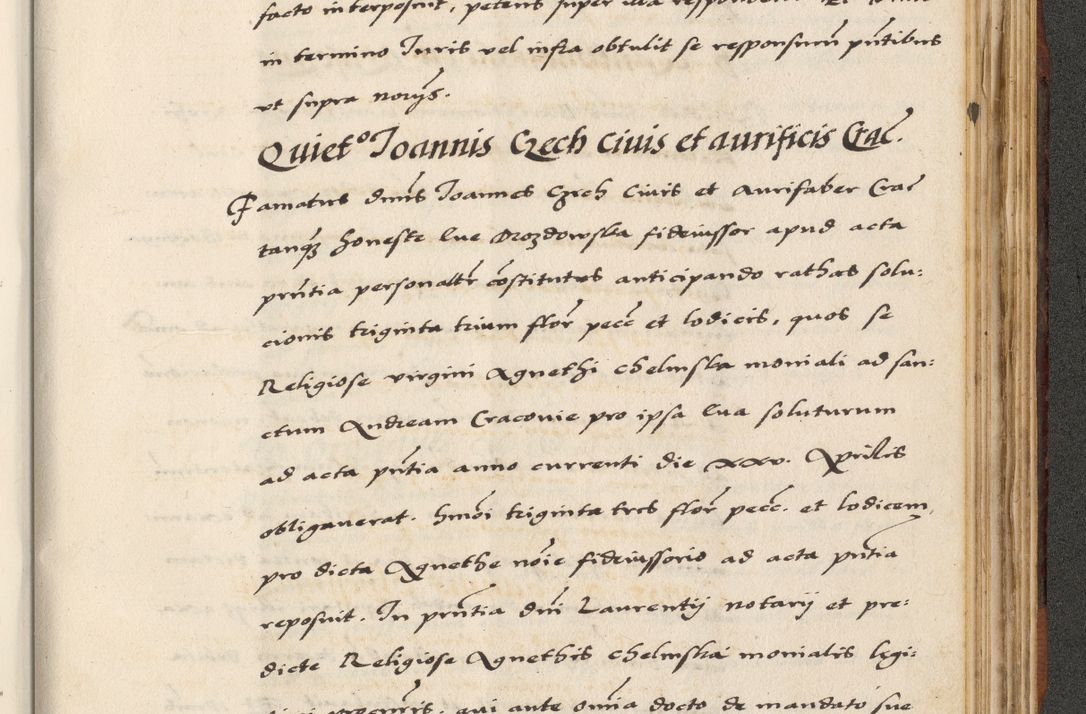 facto interposuit, petens super
in termino Iuris vel infra obtulit se responsurum pñtibus
vt supra norijs.
Quiet° Ioannis Czech ciuis et aurificis Crac.
Famatus dñus Ioannes Czech ciuis et Aurifaber Crac
tanq̃ honeste Lue Drozdowska fideiussor apud acta
pñtia personalr̃ cõstitutus anticipando rathas solu:
cionis triginta trium flor̃ pecc̃ et lodicis, quos se
Religiose virgini Agnethi Chelmska moniali ad san:
ctum Andream Cracouie pro ipsa Lua soluturum
ad acta pñtia anno currenti die xxv. Aprilis
obligauerat. hmõi triginta tres flor̃ pecc̃. et lodicem,
pro dicta Agnethe nõie fideiussorio ad acta pñtia
reposuit. In pñtia dñi Laurentij notarij et pre:
dicte Religiose Agnethis Chelmska monialis legi:
qui ante omĩa docto de mandato sue